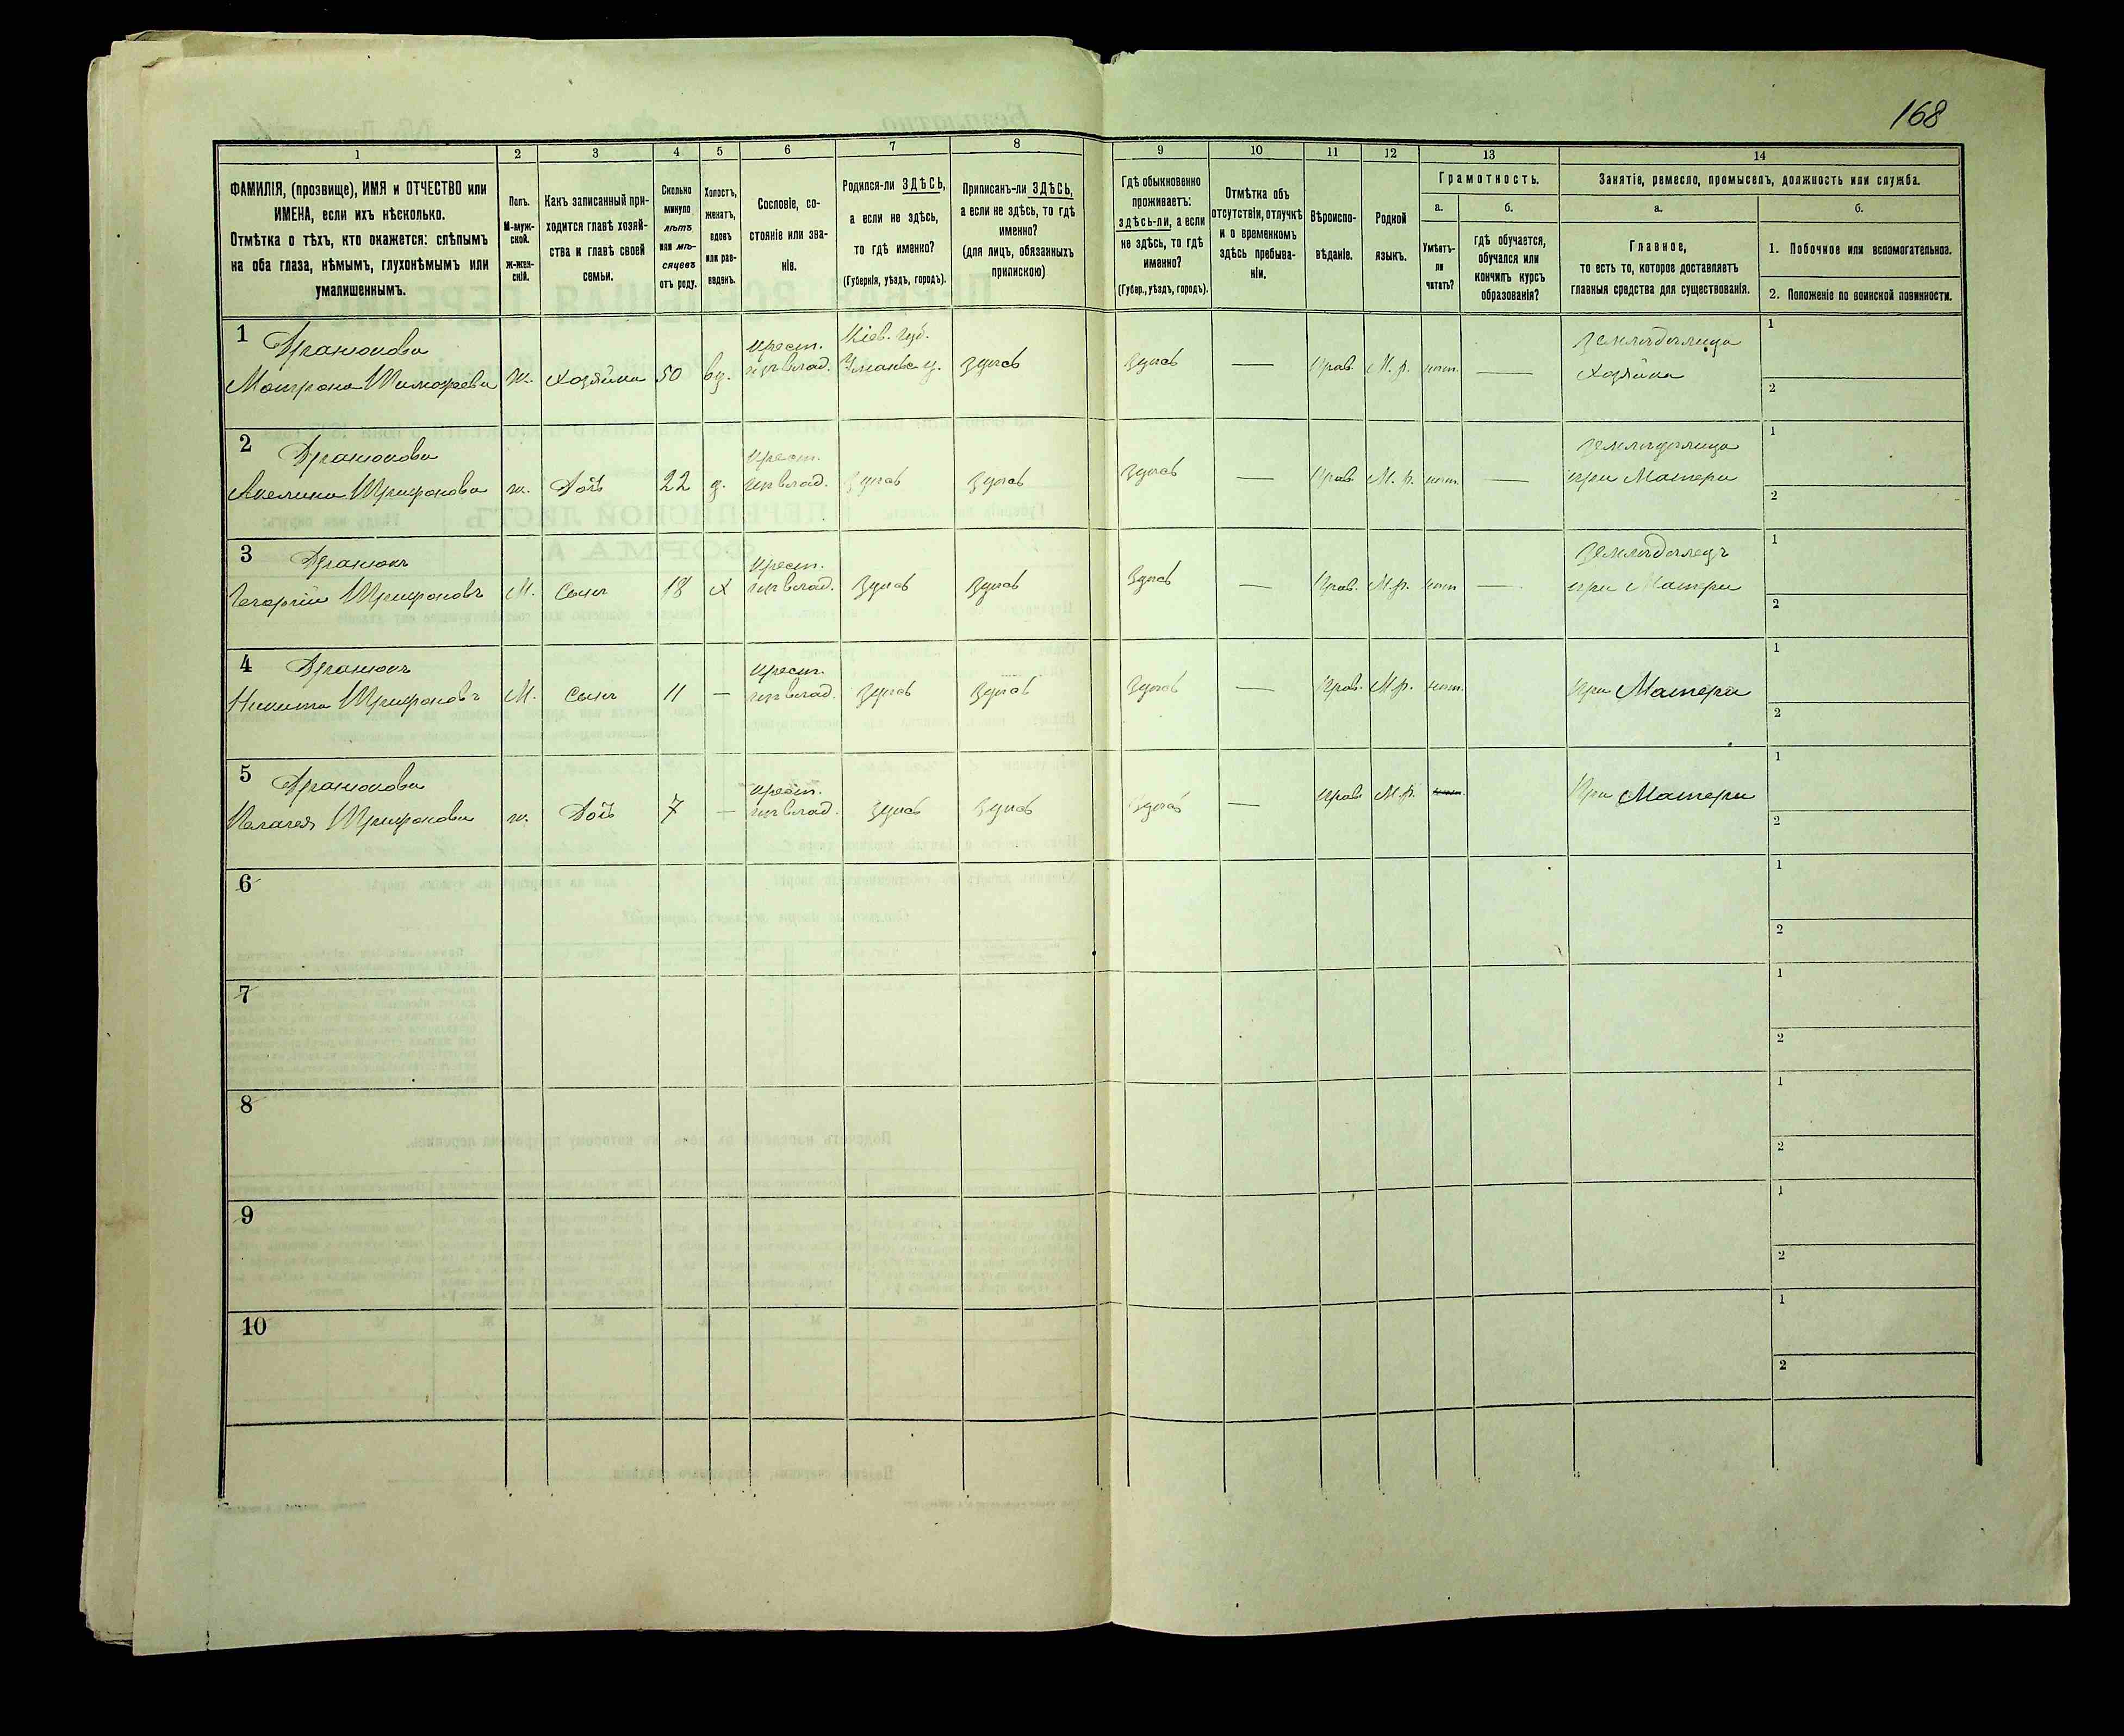 168
1
2
3
4
5
6
7
8
9
10
11
12
13
14
ФАМИЛІЯ, (прозвище), ИМЯ и ОТЧЕСТВО или
ИМЕНА, если ихъ нѣсколько.
Отмѣтка о тѣхъ, кто окажется: слѣпымъ
на оба глаза, нѣмымъ, глухонѣмымъ или
умалишеннымъ.
Полъ.
М-муж-
ской.
ж-жен-
скій.
Какъ записанный при-
ходится главѣ хозяй-
ства и главѣ своей
семьи.
Сколько
минуло
лѣтъ
или мѣ-
сяцевъ
отъ роду.
Холостъ,
женатъ,
вдовъ
или раз-
веденъ.
Сословіе, со-
стояніе или зва-
ніе.
Родился-ли ЗДѢСЬ,
а если не здѣсь,
то гдѣ именно?
(Губернія, уѣздъ, городъ).
Приписанъ-ли ЗДѢСЬ,
а если не здѣсь, то гдѣ
именно?
(для лицъ, обязанныхъ
припискою)
Гдѣ обыкновенно
проживаетъ:
здѣсь-ли, а если
не здѣсь, то гдѣ
именно?
(Губер., уѣздъ, городъ).
Отмѣтка объ
отсутствіи, отлучкѣ
и о временномъ
здѣсь пребыва-
ніи.
Вѣроиспо-
вѣданіе.
Родной
языкъ.
Грамотность.
а.
Умѣетъ-
ли
читать?
б.
гдѣ обучается,
обучался или
кончилъ курсъ
образованія?
Занятіе, ремесло, промыселъ, должность или служба.
а.
Главное,
то есть то, которое доставляетъ
главныя средства для существованія.
б.
1. Побочное или вспомогательное.
2. Положеніе по воинской повинности.
1
Мотрона Тимофеева
ж.
Хозяйка
50
вд.
крест.
Кіев. губ.
здѣсь
здѣсь
—
Прав.
М. р.
нѣт.
—
Хозяйка
1
2
2
Трифонова
ж.
Дочь
22
д.
крест.
здѣсь
здѣсь
здѣсь
—
Прав.
М. р.
нѣт.
—
при Матери
1
2
3
Георгій Трифоновъ
М.
Сынъ
18
Х
крест.
здѣсь
здѣсь
здѣсь
—
Прав.
М. р.
нѣт
—
Земледѣлецъ
при Матери
1
2
4
Никита Трифоновъ
М.
Сынъ
11
—
крест.
здѣсь
здѣсь
здѣсь
—
Прав.
М. р.
нѣт.
при Матери
1
2
5
Пелагея Трифонова
ж.
Дочь
7
—
крест.
здѣсь
здѣсь
здѣсь
—
Прав.
М. р.
При Матери
1
2
6
1
2
7
1
2
8
1
2
9
1
2
10
1
2